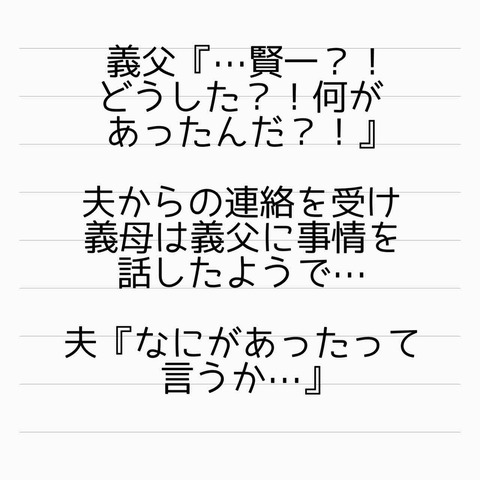 義父『…賢一？！
どうした？！何が
あったんだ？！』
夫からの連絡を受け
義母は義父に事情を
話したようで…
夫『なにがあったって
言うか…』